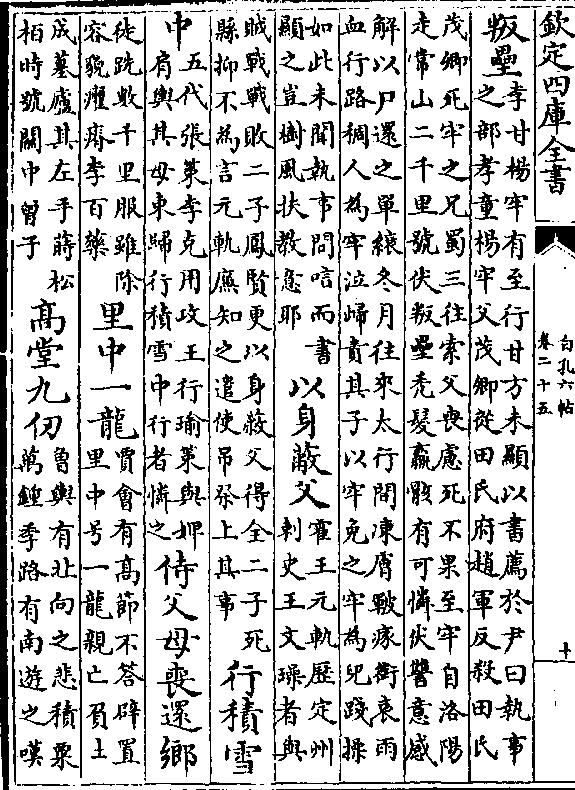 欽定四庫全書
白孔六帖
卷二十五
十
叛壘
李甘楊牢有至行甘方未顯以書薦於尹曰執事
之部孝童楊牢父茂卿從田氏府趙軍反殺田氏
茂卿死牢之兄蜀三往索父喪慮死不果至牢自洛陽
走常山二千里號伏叛壘禿髮羸骸有可憐伏讐意感
解以尸還之單縗冬月往來太行間凍膚皸瘃銜哀雨
血行路稠人為牢泣歸責其子以牢免之牢為兒踐操
如此未聞執事問唁而書
顯之豈樹風扶教意耶
以身蔽父
霍王元軌歷定州
刺史王文璪者與
賊戰戰敗二子鳳賢更以身蔽父得全二子死
縣抑不為言元軌廉知之遣使吊祭上其事
行積雪
中
五代張策孝克用攻王行瑜策與婢
肩輿其母東歸行積雪中行者憐之
侍父母喪還鄉
徒跣數千里服雖除
容貌癯瘠李百藥
里中一龍
賈會有高節不答辟置
里中号一龍親亡負土
成墓廬其左手蒔松
栢時號關中曾子
高堂九仞
魯輿有北向之悲積粟
萬鍾季路有南遊之嘆